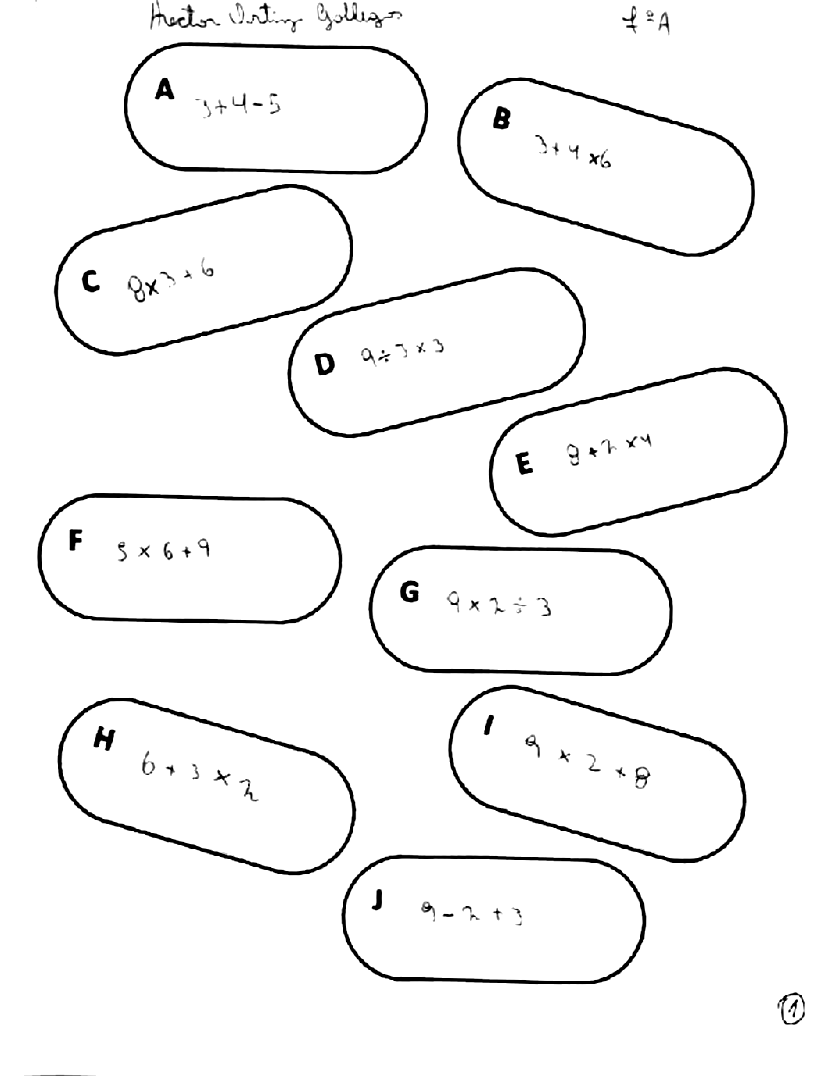 Hector Ortiz Gallegos 1ºA
A 3+4-5
B 3+4×6
C 8×3+6
D 9÷3×3
E 8+2×4
F 5×6+9
G 9×2÷3
H 6+3×2
I 9×2+8
J 9-2+3
1